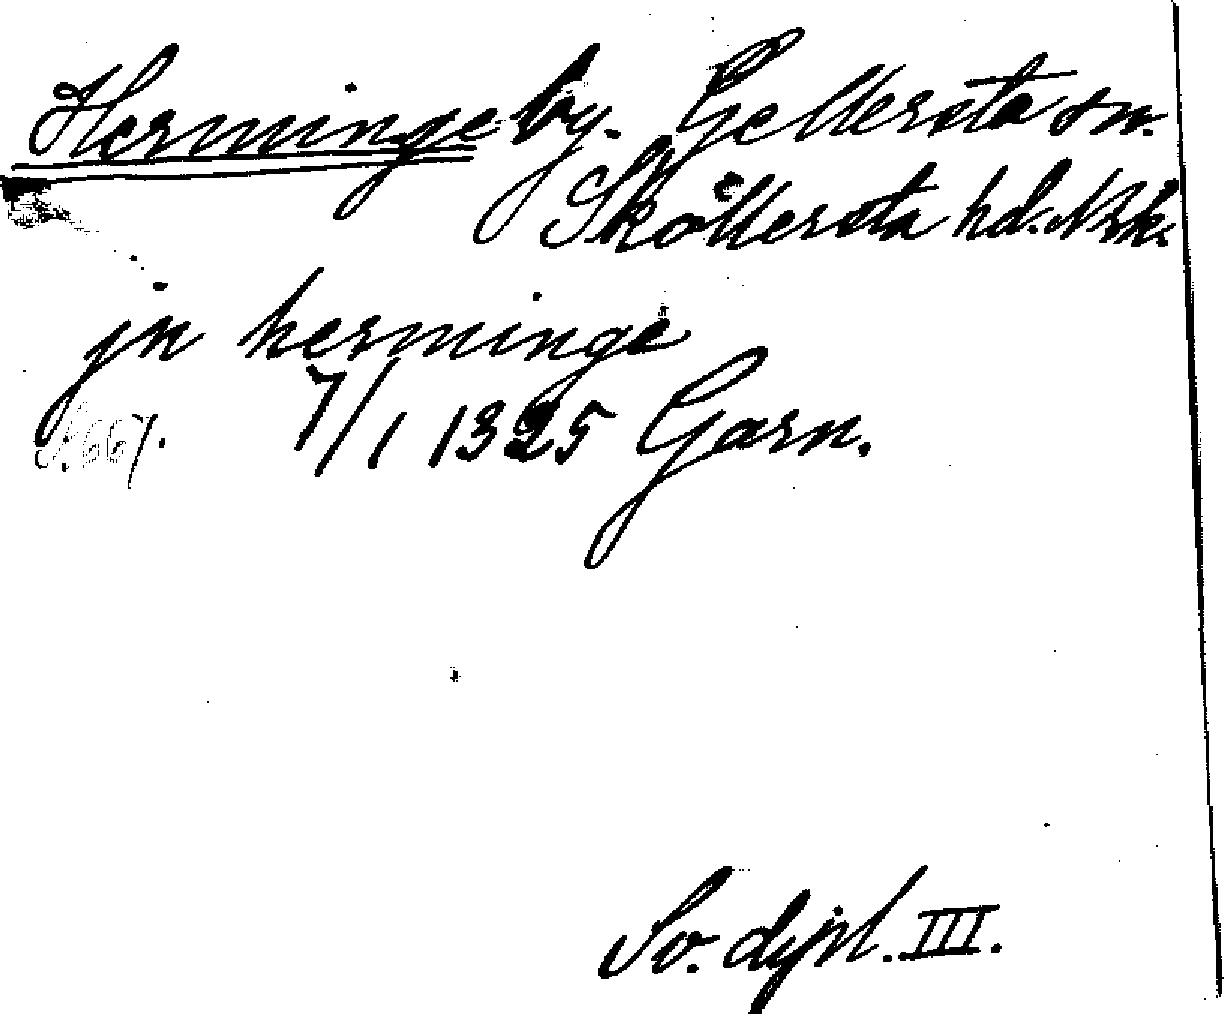 Herminge by. Gellersta sn.
Sköllersta hd. Nrk.
jn herminge
S. 667. 7/1 1325 Garn.
Sv. dipl. III.